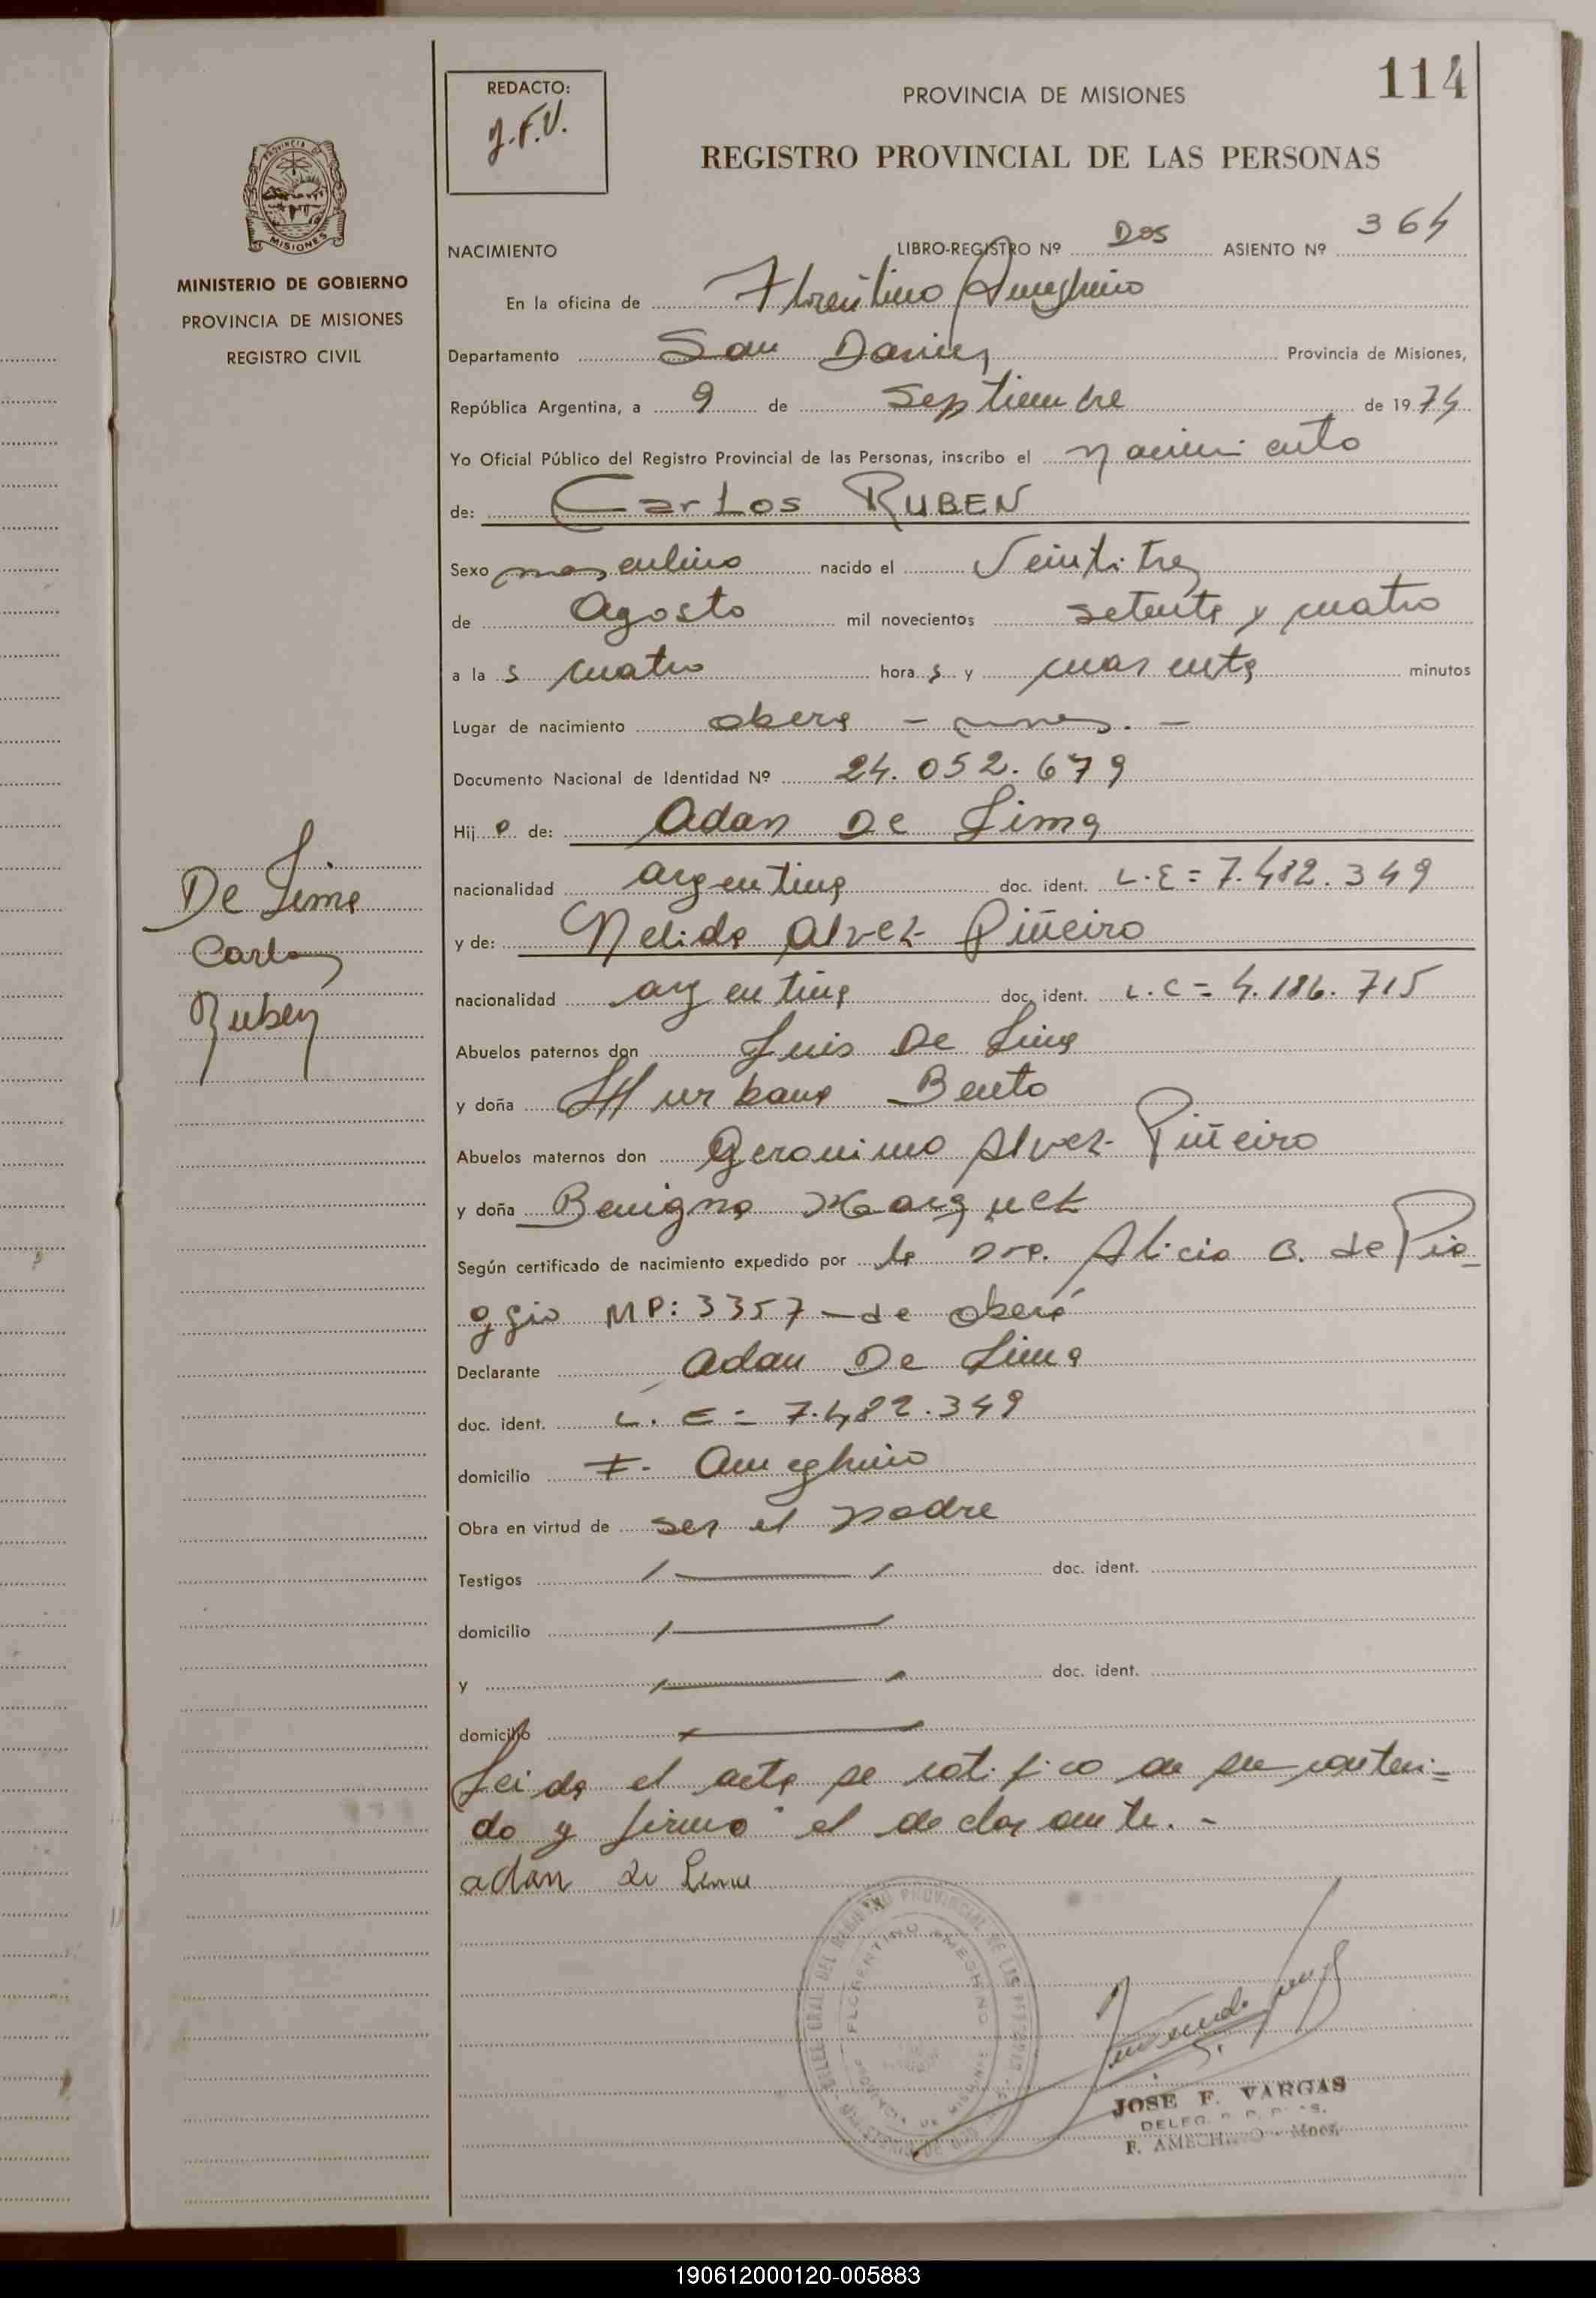 114
REDACTO:
J.F.V.
PROVINCIA DE MISIONES
REGISTRO PROVINCIAL DE LAS PERSONAS
MINISTERIO DE GOBIERNO
PROVINCIA DE MISIONES
REGISTRO CIVIL
NACIMIENTO LIBRO-REGISTRO Nº Dos ASIENTO Nº 364
En la oficina de Florentino Ameghino
Departamento San Javier Provincia de Misiones,
República Argentina, a 9 de Septiembre de 1974
Yo Oficial Público del Registro Provincial de las Personas, inscribo el nacimiento
de: Carlos RUBEN
Sexo masculino nacido el Veintitres
de Agosto mil novecientos setenta y cuatro
a las cuatro horas y cuarenta minutos
Lugar de nacimiento obera -
Documento Nacional de Identidad Nº 24.052.679
Hijo de: Adan De Lima
nacionalidad argentina doc. ident. L.E = 7.482.349
y de: Nelida Alvez Piñeiro
nacionalidad argentina doc. ident. L.C = 4.186.715
Abuelos paternos don Luis De Lima
y doña Urbana Bento
Abuelos maternos don Geronimo Alvez Piñeiro
y doña Benigna Marquez
Según certificado de nacimiento expedido por la Dra. Alicia B. de Pia-
ggio MP: 3357 - de oberá
Declarante Adan De Lima
doc. ident. L. E = 7.482.349
domicilio F. Ameghino
Obra en virtud de ser el padre
Testigos doc. ident.
domicilio
y doc. ident.
domicilio
Leida el acta se ratifico de su conteni=
do y firmó el declarante. -
adan de Lima
De Lima
Carlos
Ruben
FLORENTINO AMEGHINO
PROVINCIA DE MISIONES
JOSE F. VARGAS
190612000120-005883